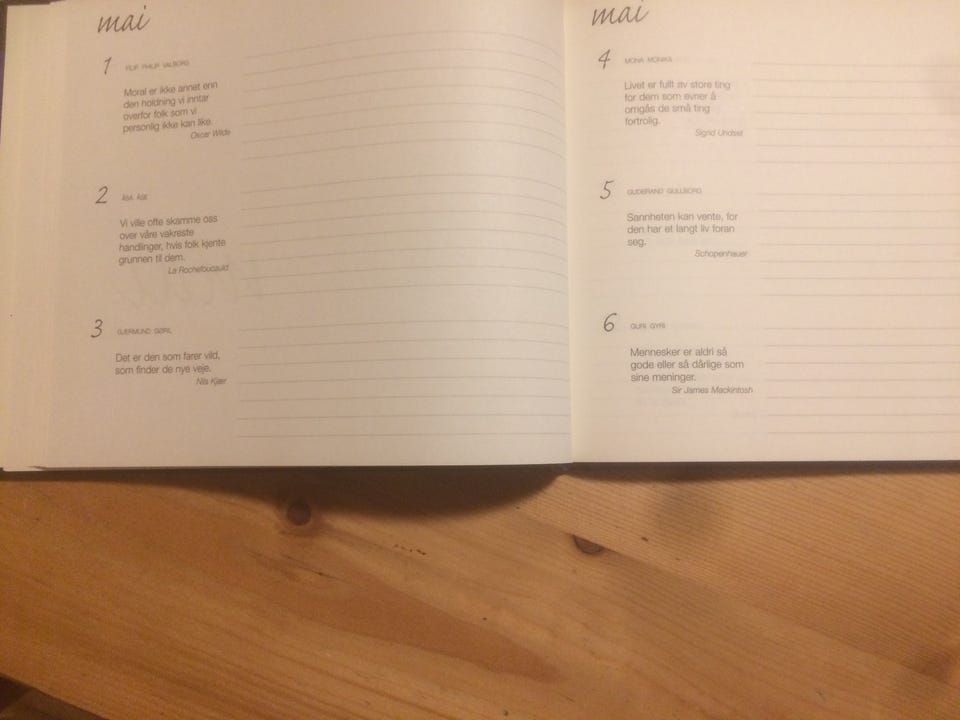 mai
1 FILIP PHILIP VALBORG
Moral er ikke annet enn
den holdning vi inntar
overfor folk som vi
personlig ikke kan like.
Oscar Wilde
2 ÅSA ÅSE
Vi ville ofte skamme oss
over våre vakreste
handlinger, hvis folk kjente
grunnen til dem.
La Rochefoucauld
3 GJERMUND GØRIL
Det er den som farer vild,
som finder de nye veje.
Nils Kjær
mai
4 MONA MONIKA
Livet er fullt av store ting
for dem som evner å
omgås de små ting
fortrolig.
Sigrid Undset
5 GUDBRAND GULLBORG
Sannheten kan vente, for
den har et langt liv foran
seg.
Schopenhauer
6 GURI GYRI
Mennesker er aldri så
gode eller så dårlige som
sine meninger.
Sir James Mackintosh